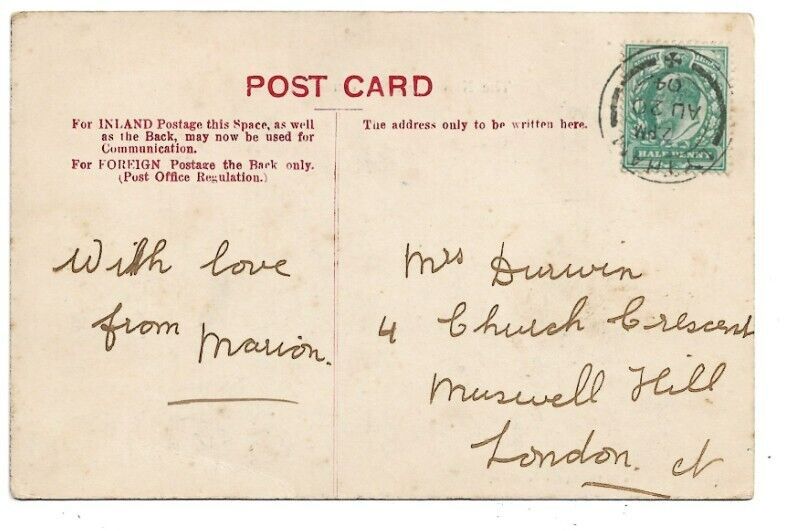 POST CARD
For INLAND Postage this Space, as well
as the Back, may now be used for
Communication.
For FOREIGN Postage the Back only.
(Post Office Regulation.)
The address only to be written here.
With love
from Marion.
Mrs Durwin
4 Church Crescent
Muswell Hill
London. N.
HALFPENNY
12 PM
AU 20
04